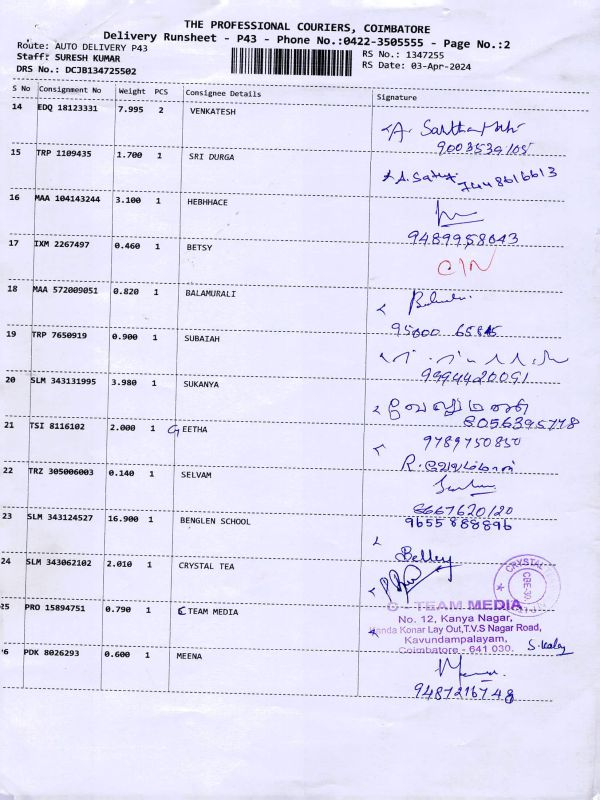 THE PROFESSIONAL COURIERS, COIMBATORE
Delivery Runsheet - P43 - Phone No.:0422-3505555 - Page No.:2
Route: AUTO DELIVERY P43
RS No.: 1347255
Staff: SURESH KUMAR
RS Date: 03-Apr-2024
DRS No.: DCJB134725502
S No Consignment No Weight PCS Consignee Details Signature
14 EDQ 18123331 7.995 2 VENKATESH
A.
9003539105
15 TRP 1109435 1.700 1 SRI DURGA
7448616613
16 MAA 104143244 3.100 1 HEBHHACE
9489958043
17 IXM 2267497 0.460 1 BETSY
18 MAA 572009051 0.820 1 BALAMURALI
95000 65845
19 TRP 7650919 0.900 1 SUBAIAH
9994420091
20 SLM 343131995 3.980 1 SUKANYA
8056395778
21 TSI 8116102 2.000 1 GEETHA
9789750850
22 TRZ 305006003 0.140 1 SELVAM
8667620120
23 SLM 343124527 16.900 1 BENGLEN SCHOOL
9655888896
24 SLM 343062102 2.010 1 CRYSTAL TEA
CRYSTAL
25 PRO 15894751 0.790 1 C TEAM MEDIA
C - TEAM MEDIA
No. 12, Kanya Nagar,
Konar Lay Out,T.V.S Nagar Road,
Kavundampalayam,
Coimbatore - 641 030.
26 PDK 8026293 0.600 1 MEENA
9487216748